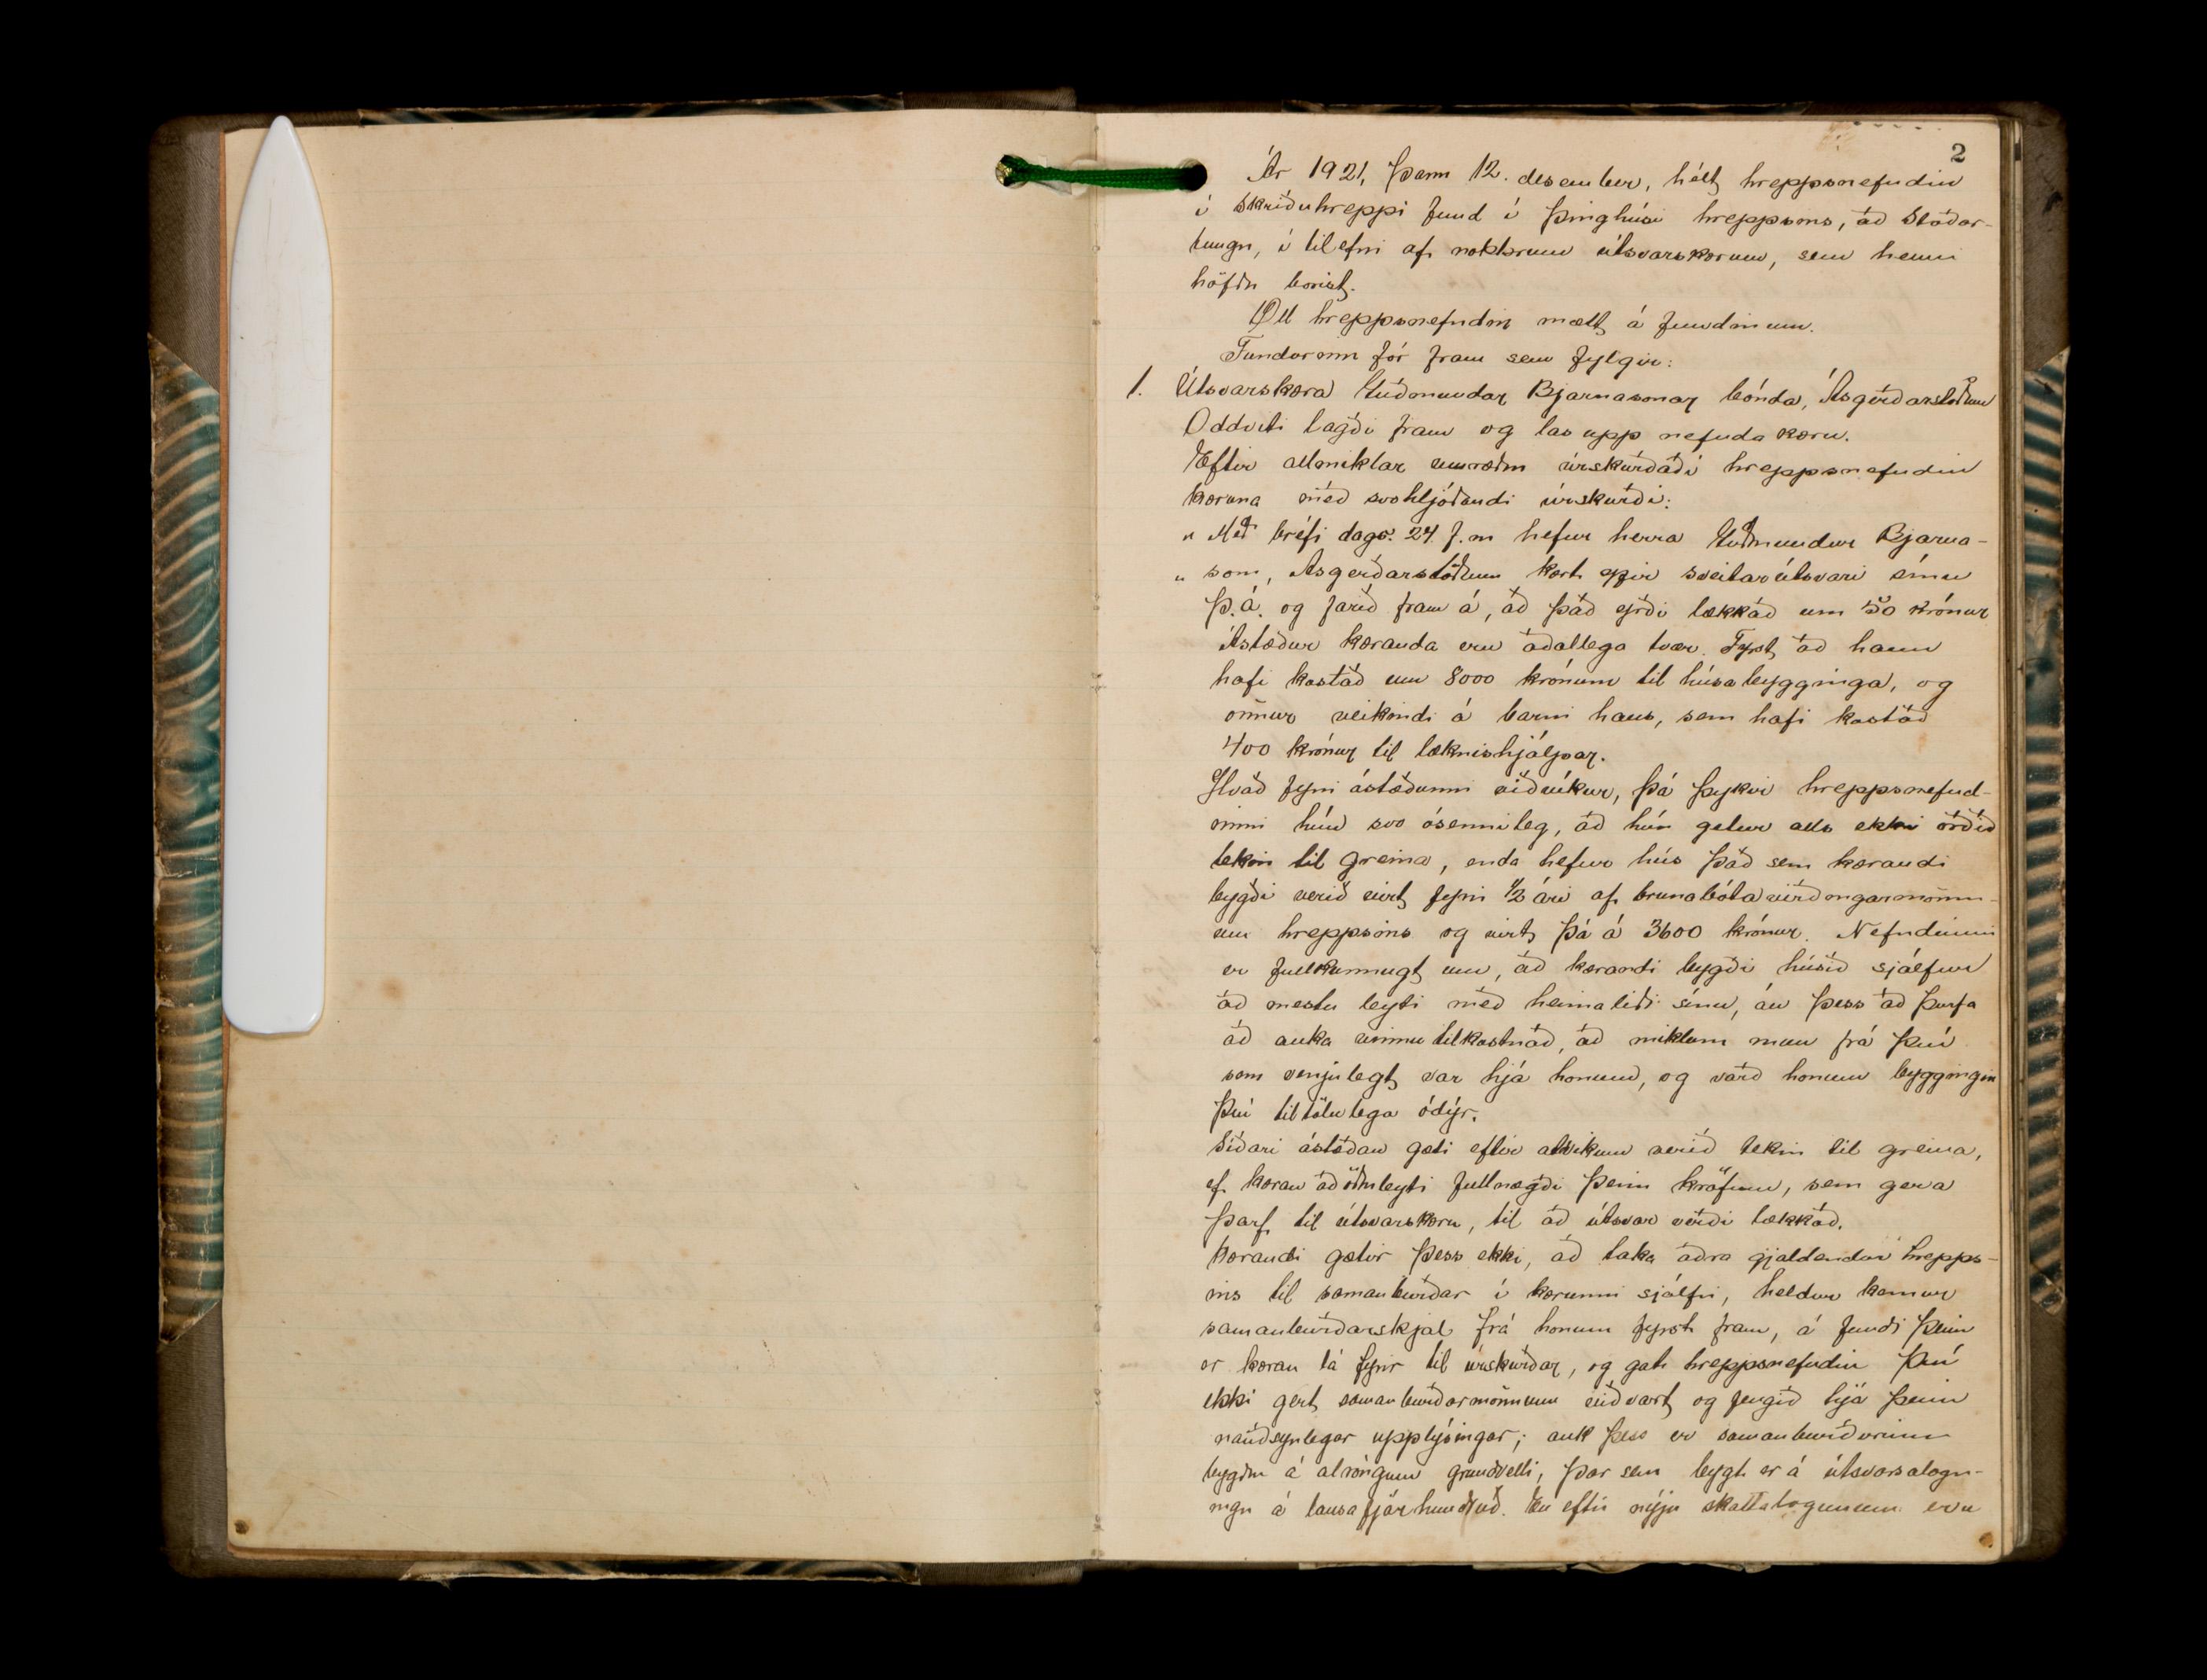 2
Ár 1921, þann 12. desember, hélt hreppsnefndin
í Skriðuhreppi fund í þinghúsi hreppsins, að Staðar-
tungu, í tilefni af nokkrum útsvarskærum, sem henni
höfðu borist.
Öll hreppsnefndin mætt á fundinum.
Fundurinn fór fram sem fylgir:
1. Útsvarskæra Guðmundar Bjarnasonar bónda, Ásgerðarstöðum
Oddviti lagði fram og las upp nefnda kæru.
Eftir allmiklar umræðu úrskurðaði hreppsnefndin
kæruna með svohljóðandi úrskurði:
„ Með bréfi dags. 24. f.m hefur herra Guðmundur Bjarna-
„ son, Ásgerðarstöðum kært yfir sveitarútsvari sínu
þ.á. og farið fram á, að það yrði lækkað um 50 krónur
Ástæður kæranda eru aðallega tvær. Fyrst að hann
hafi kostað um 8000 krónum til húsabygginga, og
önnur veikindi á barni hans, sem hafi kostað
400 krónur til læknishjálpar.
Hvað fyrri ástæðunni viðvíkur, þá þykir hreppsnefnd-
inni hún svo ósennileg, að hún getur alls ekki orðið
tekin til greina, enda hefur hús það sem kærandi
bygði verið virt fyrir 1/2 ári af brunabótavirðingarmönn-
um hreppsins og virt þá á 3600 krónur. Nefndinni
er fullkunnugt um, að kærandi bygði húsið sjálfur
að mestu leyti með heimaliði sínu, án þess að þurfa
að auka vinnutilkostnað, að miklum mun frá því
sem venjulegt var hjá honum, og varð honum byggingin
því tiltölulega ódýr.
Síðari ástæðan gæti eftir atvikum verið tekin til greina,
ef kæran að öðruleyti fullnægði þeim kröfum, sem gera
þarf til útsvarskæru, til að útsvar verði lækkað.
Kærandi gætir þess ekki, að taka aðra gjaldendur hrepps-
ins til samanburðar í kærunni sjálfri, heldur kemur
samanburðarskjal frá honum fyrst fram, á fundi þeim
er kæran lá fyrir til úrskurðar, og gat hreppsnefndin því
ekki gert samanburðarmönnum viðvart og fengið hjá þeim
nauðsynlegar upplýsingar; auk þess er samanburðurinn
bygður á alröngum grundvelli, þar sem bygt er á útsvarsálagn-
ingu á lausafjárhundruð. En eftir nýju skattalögunum eru